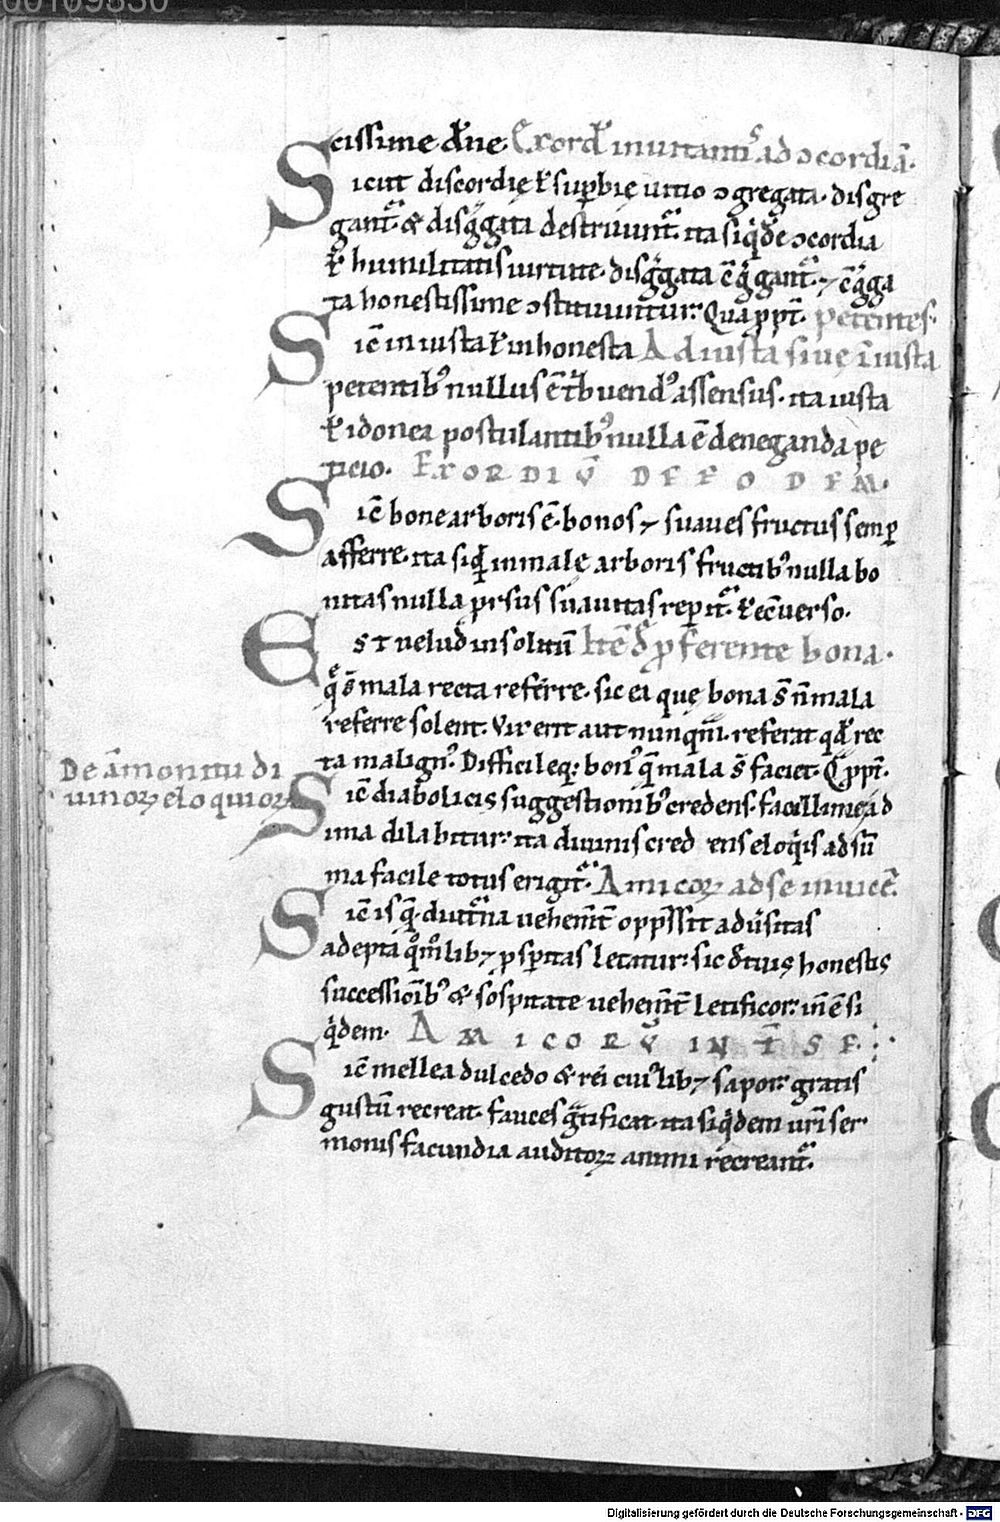 00109530
cissime dn̄e. Exord̄ inuitantis ad ɔcordiā.
Sicut discordię ł supbie uitio ɔgregata. disgre
gant̃. & disg̃gata destruunt̃. ita siq̇de ɔcordia
ł humilitatis uirtute. disg̃gata ɔ̄g̃gant̃. ⁊ ɔ̄g̃ga
ta honestissime ɔstituuntur. Qua ppt̄. petentes.
Sic̄ in iusta ł in honesta Ad iusta siue īiusta
petentib; nullus ē t̃buend; assensus. ita iusta
ł idonea postulantib; nulla ē deneganda pe
ticio. EXORDIV̄ DE EODEM.
Sic̄ bone arboris ē. bonos ⁊ suaues fructus semp
afferre. ita siq̇d in malę arboris fructib; nulla bo
nitas nulla prsus suauitas repit̃. ł ecūerso.
Est uelud insolitū Itē d̄ pferente bona.
q̄ s̄ mala recta referre. sic ea quę bona s̄ n̄ mala
referre solent. Vir erit aut nunqm̄. referat qd̄ rec
ta malign;. Difficileq; bon; q̄ mala s̄ faciet. Qppt̄.
De āmonitu di
uinoꝝ eloquioꝝ
Sic̄ diabolicis suggestionib; credens. facillime ad
ima dilabitur. ita diuinis cred ens eloq̇is ad sū
ma facile totus erigit̃. Amicoꝝ ad se inuicē.
Sic̄ is q̄. diut̃na uehem̄t̄ opp̄ssit adūsitas
adepta q̊m̊lib; psp̄itas letatur. sic d̄ tuis honestis
successiōib; & sospitate uehem̄t̄ letificor. in ē si
q̇dem. AMICORV̄ INT̄ SE.
Sic̄ mellea dulcedo & rei cui;lib; sapor. gratis
gustū recreat. fauces g̃tificat. ita siq̇dem ur̄i ser
monis facundia auditoꝝ animi recreant̃.
Digitalisierung gefördert durch die Deutsche Forschungsgemeinschaft - DFG